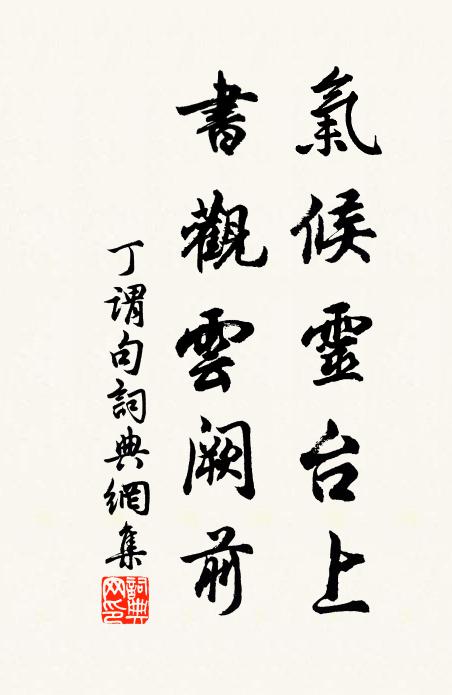 氣候靈台上
書觀雲闕前
丁謂句詞典網集
詞典网印